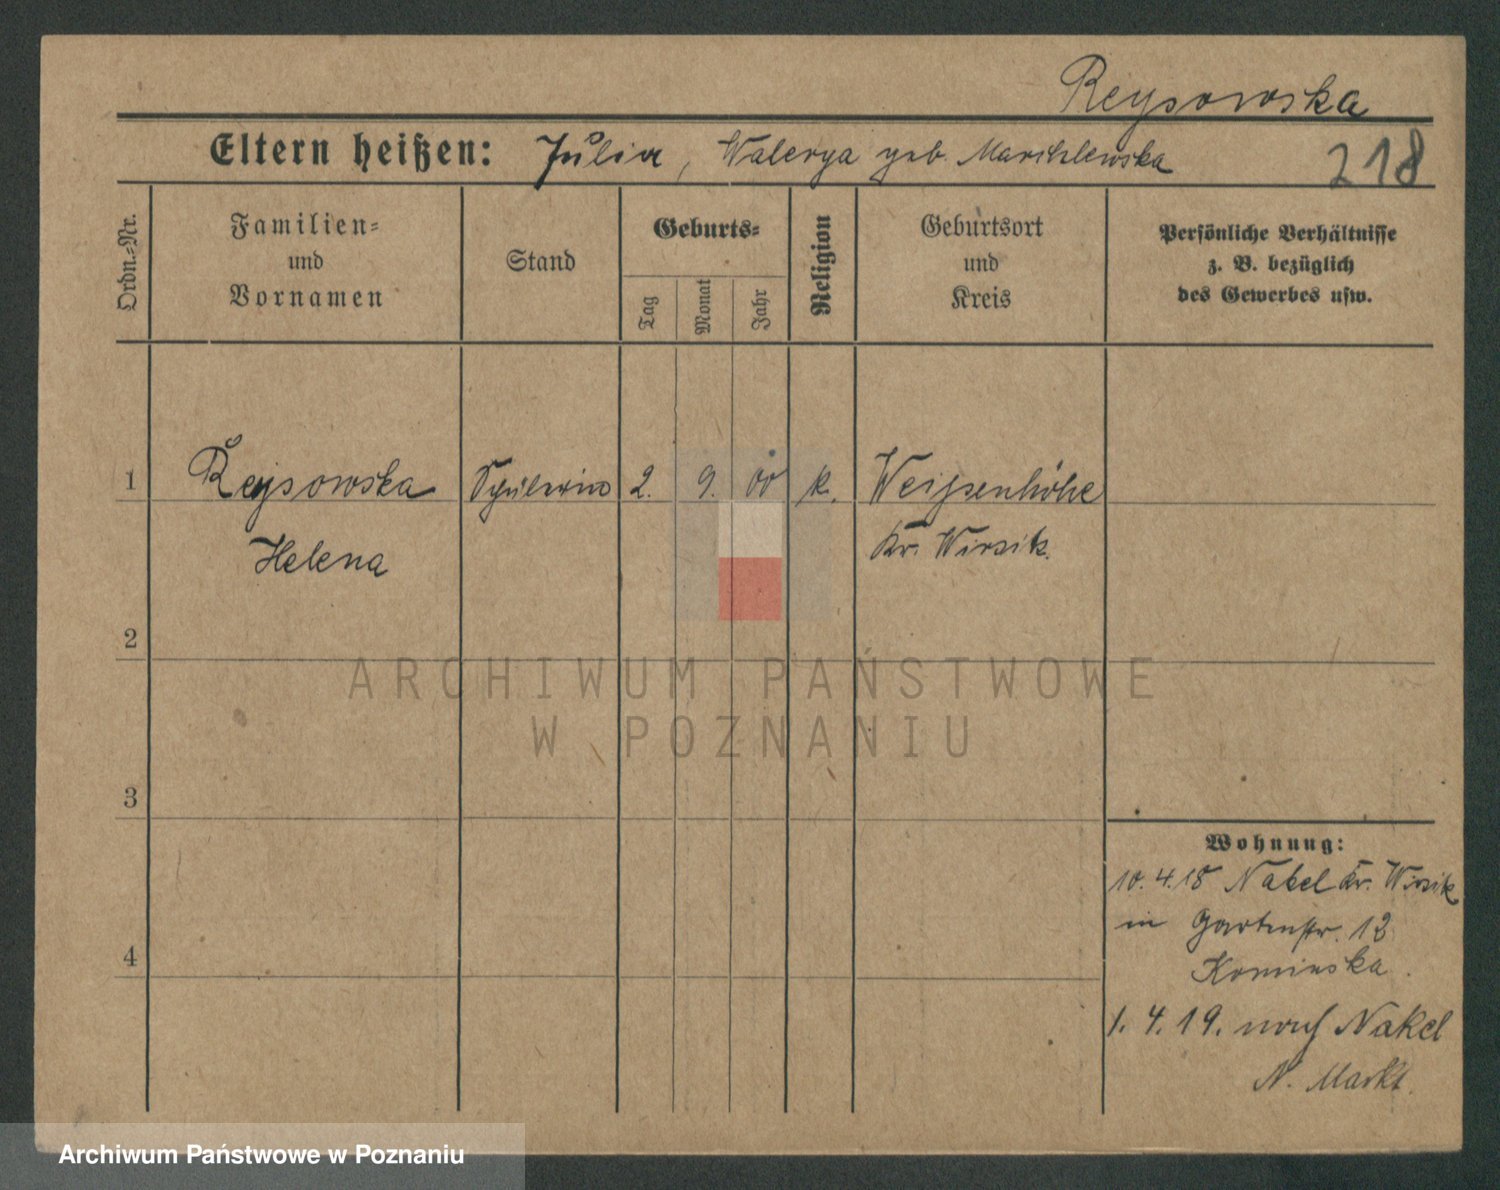 Reysowska
Eltern heißen: Julia, Walerya geb. Marchlewska
218
Ordn.-Nr.
Familien-
und
Vornamen
Stand
Geburts-
Tag
Monat
Jahr
Religion
Geburtsort
und
Kreis
Persönliche Verhältnisse
z. B. bezüglich
des Gewerbes usw.
1 Reysowska Schülerin 2. 9. 00 k. Weißenhöhe
Helena Kr. Wirsitz.
2
3
4
ARCHIWUM PAŃSTWOWE
W POZNANIU
Wohnung:
10.4.18 Nakel Kr. Wirsitz
in Gartenstr. 13
Kominska.
1. 4. 19. nach Nakel
N. Markt.
Archiwum Państwowe w Poznaniu